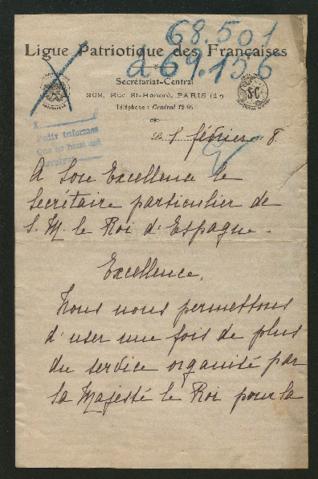 68.501
Ligue Patriotique des Françaises
269.156
Secrétariat-Central
368, Rue St-Honoré, PARIS (1er
Téléphone : Central 19.66
SC
1 février 8.
A Son Excellence le
Secrétaire particulier de
S. M. le Roi d'Espagne.
Excellence,
Nous nous permettons
d'user une fois de plus
du service organisé par
Sa Majesté le Roi pour la